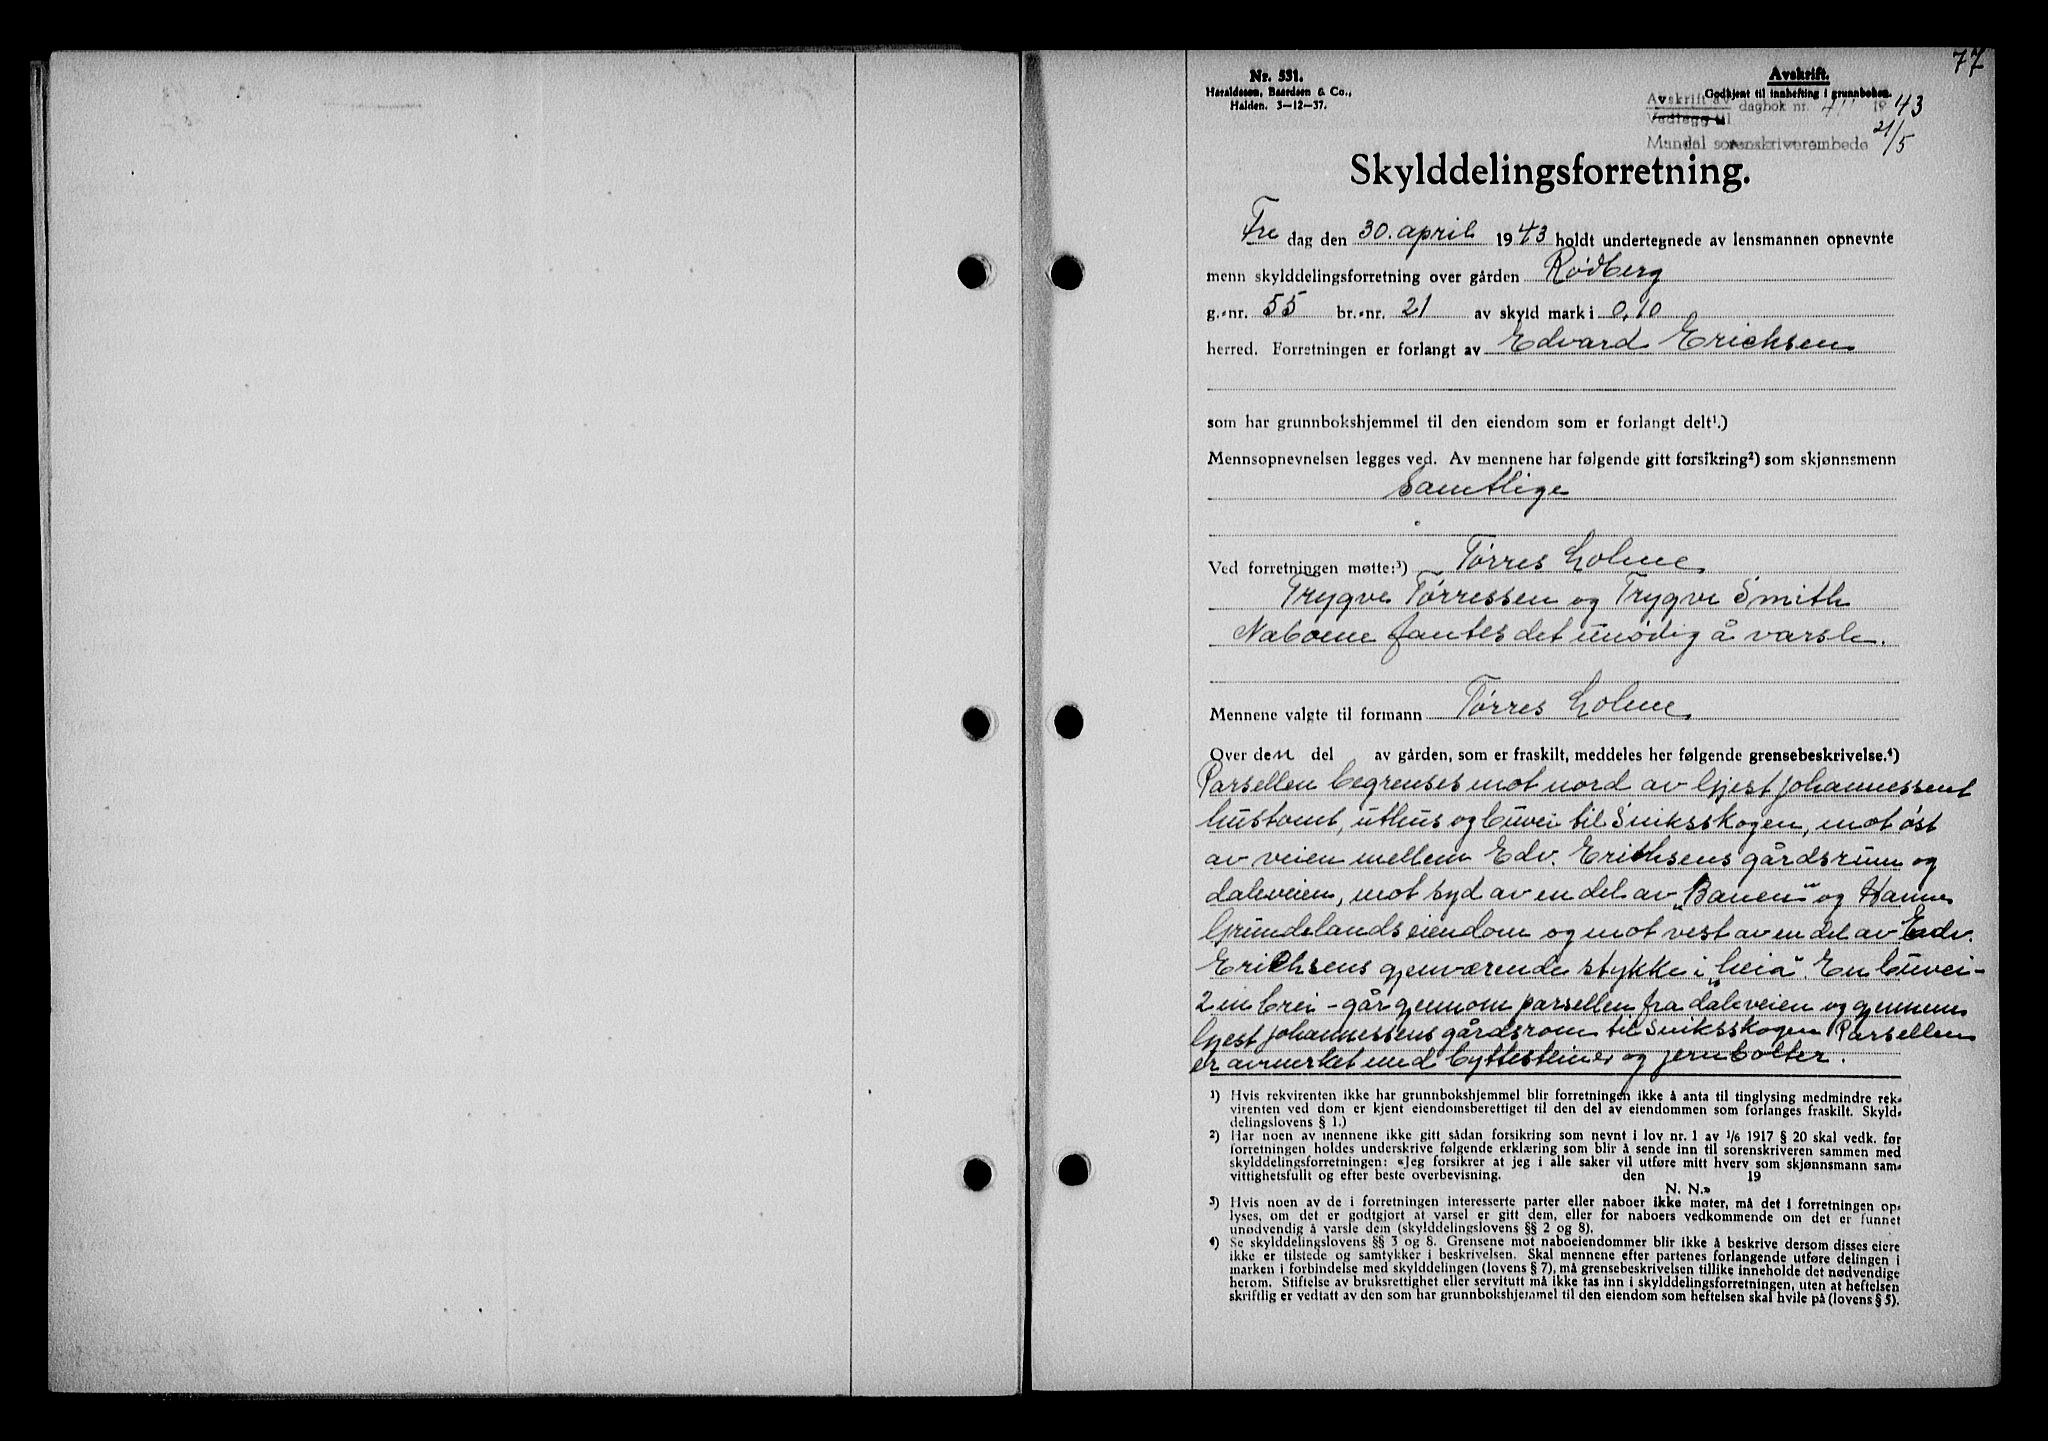 77
Nr. 531.
Haraldssen, Baardsen & Co.,
Halden. 3–12–37.
Avskrift.
Godkjent til innhefting i grunnboken.
Avskrift av
Vedlegg til
dagbok nr. 19 43
21/5
Mandal sorenskriverembede
Skylddelingsforretning.
Fre dag den 30. april 1943 holdt undertegnede av lensmannen opnevnte
menn skylddelingsforretning over gården Rødberg
g.-nr. 55 br.-nr. 21 av skyld mark i 0,10
herred. Forretningen er forlangt av Edvard Erichsen
som har grunnbokshjemmel til den eiendom som er forlangt delt¹.)
Mennsopnevnelsen legges ved. Av mennene har følgende gitt forsikring²) som skjønnsmenn
Samtlige
Ved forretningen møtte:³) Tørres Lohne
Trygve Tørressen og Trygve Smith
Naboene fantes det unødig å varsle.
Mennene valgte til formann Tørres Lohne
Over den del av gården, som er fraskilt, meddeles her følgende grensebeskrivelse.⁴)
Parsellen begrenses mot nord av Gjest Johannessens
hustomt, uthus og buvei til Sniksskogen, mot øst
av veien mellem Edv. Erichsens gårdsrum og
daleveien, mot syd av en del av „Banen" og Hanne
Grundelands eiendom og mot vest av en del av Edv.
Erichsens gjenværende stykke i „heia". En buvei –
2 m brei – går gjennom parsellen fra daleveien og gjennem
Gjest Johannessens gårdsrom til Sniksskogen Parsellen
er avmerket med byttesteiner og jernbolter.
¹) Hvis rekvirenten ikke har grunnbokshjemmel blir forretningen ikke å anta til tinglysing medmindre rek-
virenten ved dom er kjent eiendomsberettiget til den del av eiendommen som forlanges fraskilt. Skyld-
delingslovens § 1.)
²) Har noen av mennene ikke gitt sådan forsikring som nevnt i lov nr. 1 av 1/6 1917 § 20 skal vedk. før
forretningen holdes underskrive følgende erklæring som blir å sende inn til sorenskriveren sammen med
skylddelingsforretningen: «Jeg forsikrer at jeg i alle saker vil utføre mitt hverv som skjønnsmann sam-
vittighetsfullt og efter beste overbevisning. den 19
N. N.»
³) Hvis noen av de i forretningen interesserte parter eller naboer ikke møter, må det i forretningen op-
lyses, om det er godtgjort at varsel er gitt dem, eller for naboers vedkommende om det er funnet
unødvendig å varsle dem (skylddelingslovens §§ 2 og 8).
⁴) Se skylddelingslovens §§ 3 og 8. Grensene mot naboeiendommer blir ikke å beskrive dersom disses eiere
ikke er tilstede og samtykker i beskrivelsen. Skal mennene efter partenes forlangende utføre delingen i
marken i forbindelse med skylddelingen (lovens § 7), må grensebeskrivelsen tillike inneholde det nødvendige
herom. Stiftelse av bruksrettighet eller servitutt må ikke tas inn i skylddelingsforretningen, uten at heftelsen
skriftlig er vedtatt av den som har grunnbokshjemmel til den eiendom som heftelsen skal hvile på (lovens § 5).